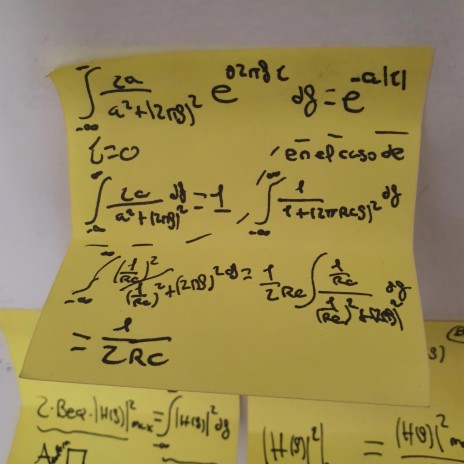 ∫_{-∞}^{∞} 2a / (a² + (2πf)²) e^{j2πfτ} df = e^{-a|τ|}
τ=0
en el caso de
∫_{-∞}^{∞} 2a / (a² + (2πf)²) df = 1
∫_{-∞}^{∞} 1 / (1 + (2πRCf)²) df
∫_{-∞}^{∞} (1/RC)² / ((1/RC)² + (2πf)²) df = 1/2RC ∫ (1/RC) / ((1/RC)² + (2πf)²) df
= 1 / 2RC
2·Beq·|H(f)|²max = ∫_{-∞} |H(f)|² df
|H(f)|² = (H(f))² m